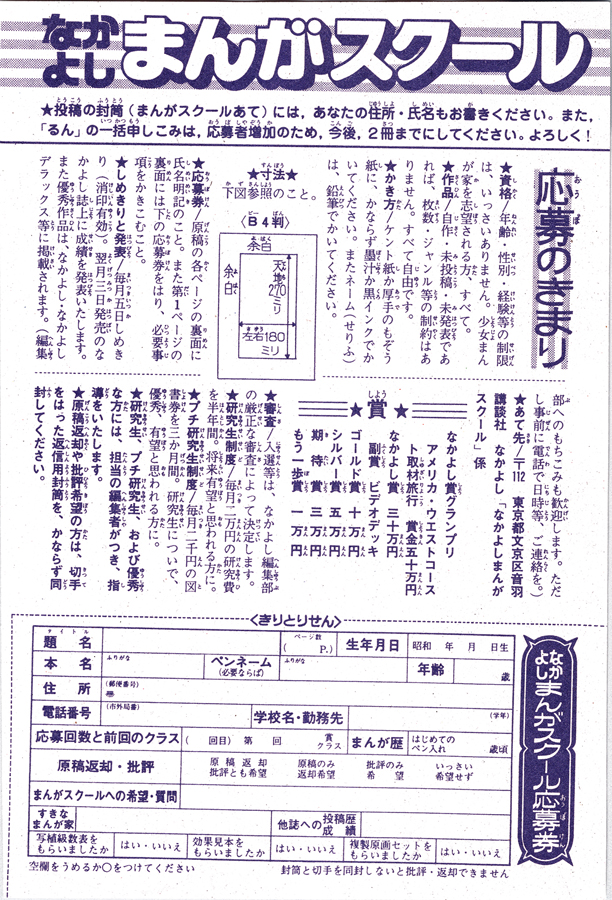 なかよし まんがスクール
★投稿の封筒(まんがスクールあて)には,あなたの住所・氏名もお書きください。また,
「るん」の一括申しこみは,応募者増加のため,今後,2冊までにしてください。よろしく!
応募のきまり
★資格/年齢・性別・経験等の制限
は、いっさいありません。少女まん
が家を志望される方、すべて。
★作品/自作・未投稿・未発表であ
れば、枚数・ジャンル等の制約はあ
りません。すべて自由です。
★かき方/ケント紙か厚手のもぞう
紙に、かならず墨汁か黒インクでか
いてください。またネーム(せりふ)
は、鉛筆でかいてください。
★寸法★
下図参照のこと。
〈B4判〉
余白
余白
天地270ミリ
左右180ミリ
★応募券/原稿の各ページの裏面に
氏名明記のこと。また第1ページの
裏面には下の応募券をはり、必要事
項をかきこむこと。
★しめきりと発表/毎月五日しめき
り(消印有効)。翌月三日発売のな
かよし誌上に成績を発表いたします。
また優秀作品は、なかよし・なかよし
デラックス等に掲載されます。(編集
部へのもちこみも歓迎します。ただ
し事前に電話で日時等、ご連絡を。)
★あて先/〒112 東京都文京区音羽
講談社 なかよし「なかよしまんが
スクール」係
★賞★
なかよし賞グランプリ
アメリカ・ウエストコース
ト取材旅行 賞金五十万円
なかよし賞 三十万円
副賞 ビデオデッキ
ゴールド賞 十万円
シルバー賞 五万円
期待賞 三万円
もう一歩賞 一万円
★審査/入選等は、なかよし編集部
の厳正な審査によって決定します。
★研究生制度/毎月二万円の研究費
を半年間。将来有望と思われる方に。
★プチ研究生制度/毎月二千円の図
書券を三か月間。研究生について、
優秀、有望と思われる方に。
★研究生、プチ研究生、および優秀
な方には、担当の編集者がつき、指
導をいたします。
★原稿返却や批評希望の方は、切手
をはった返信用封筒を、かならず同
封してください。
〈きりとりせん〉
なかよしまんがスクール応募券
題名 タイトル ページ数 ( P.) 生年月日 昭和 年 月 日生
本名 ふりがな ペンネーム (必要ならば) ふりがな 年齢 歳
住所 (郵便番号) 〒
電話番号 (市外局番) 学校名・勤務先 (学年)
応募回数と前回のクラス ( 回目) 第 回 賞クラス まんが歴 はじめてのペン入れ 歳頃
原稿返却・批評 原稿返却批評とも希望 原稿のみ返却希望 批評のみ希望 いっさい希望せず
まんがスクールへの希望・質問
すきなまんが家 他誌への投稿歴成績
写植級数表をもらいましたか はい・いいえ 効果見本をもらいましたか はい・いいえ 複製原画セットをもらいましたか はい・いいえ
空欄をうめるか○をつけてください 封筒と切手を同封しないと批評・返却できません